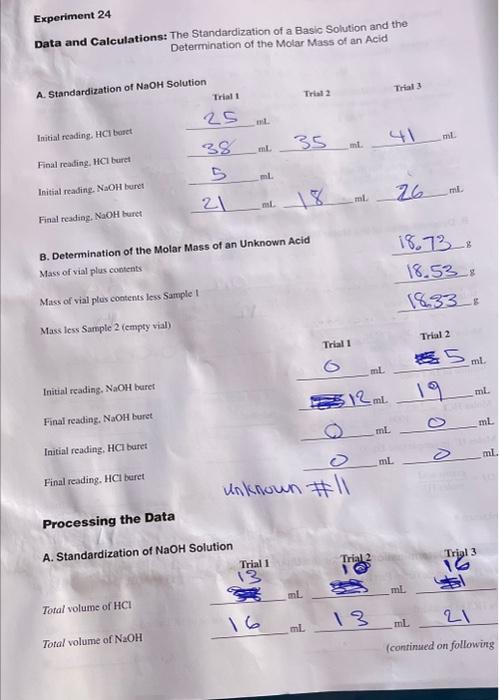 Experiment 24
Data and Calculations: The Standardization of a Basic Solution and the
Determination of the Molar Mass of an Acid
A. Standardization of NaOH Solution
Trial 1 Trial 2 Trial 3
Initial reading, HCl buret 25 mL
Final reading, HCl buret 38 mL 35 mL 41 mL
Initial reading, NaOH buret 5 mL
Final reading, NaOH buret 21 mL 18 mL 26 mL
B. Determination of the Molar Mass of an Unknown Acid
Mass of vial plus contents 18.73 g
Mass of vial plus contents less Sample 1 18.53 g
Mass less Sample 2 (empty vial) 18.33 g
Trial 1 Trial 2
Initial reading, NaOH buret 0 mL 5 mL
Final reading, NaOH buret 12 mL 19 mL
Initial reading, HCl buret 0 mL 0 mL
Final reading, HCl buret 0 mL 0 mL
Unknown #11
Processing the Data
A. Standardization of NaOH Solution
Trial 1 Trial 2 Trial 3
13 10 16
Total volume of HCl mL mL
Total volume of NaOH 16 mL 13 mL 21
(continued on following